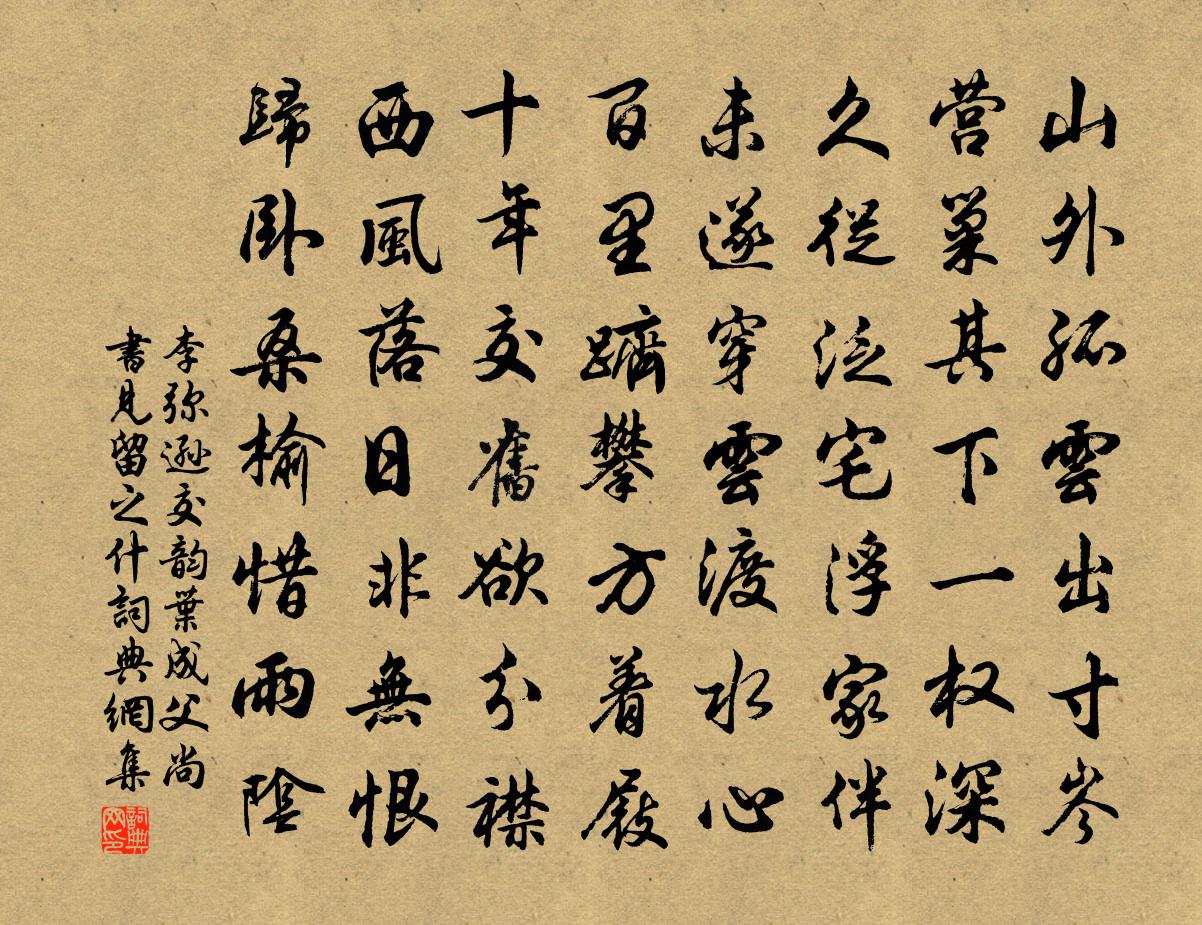 山外孤雲出寸岑
營巢其下一权深
久從泛宅浮家伴
未遂穿雲渡水心
百里躋攀方着屐
十年交舊欲分襟
西風落日非無恨
歸卧桑榆惜雨陰
李弥遜交韵葉成父尚
書見留之什詞典網集
詞典网印